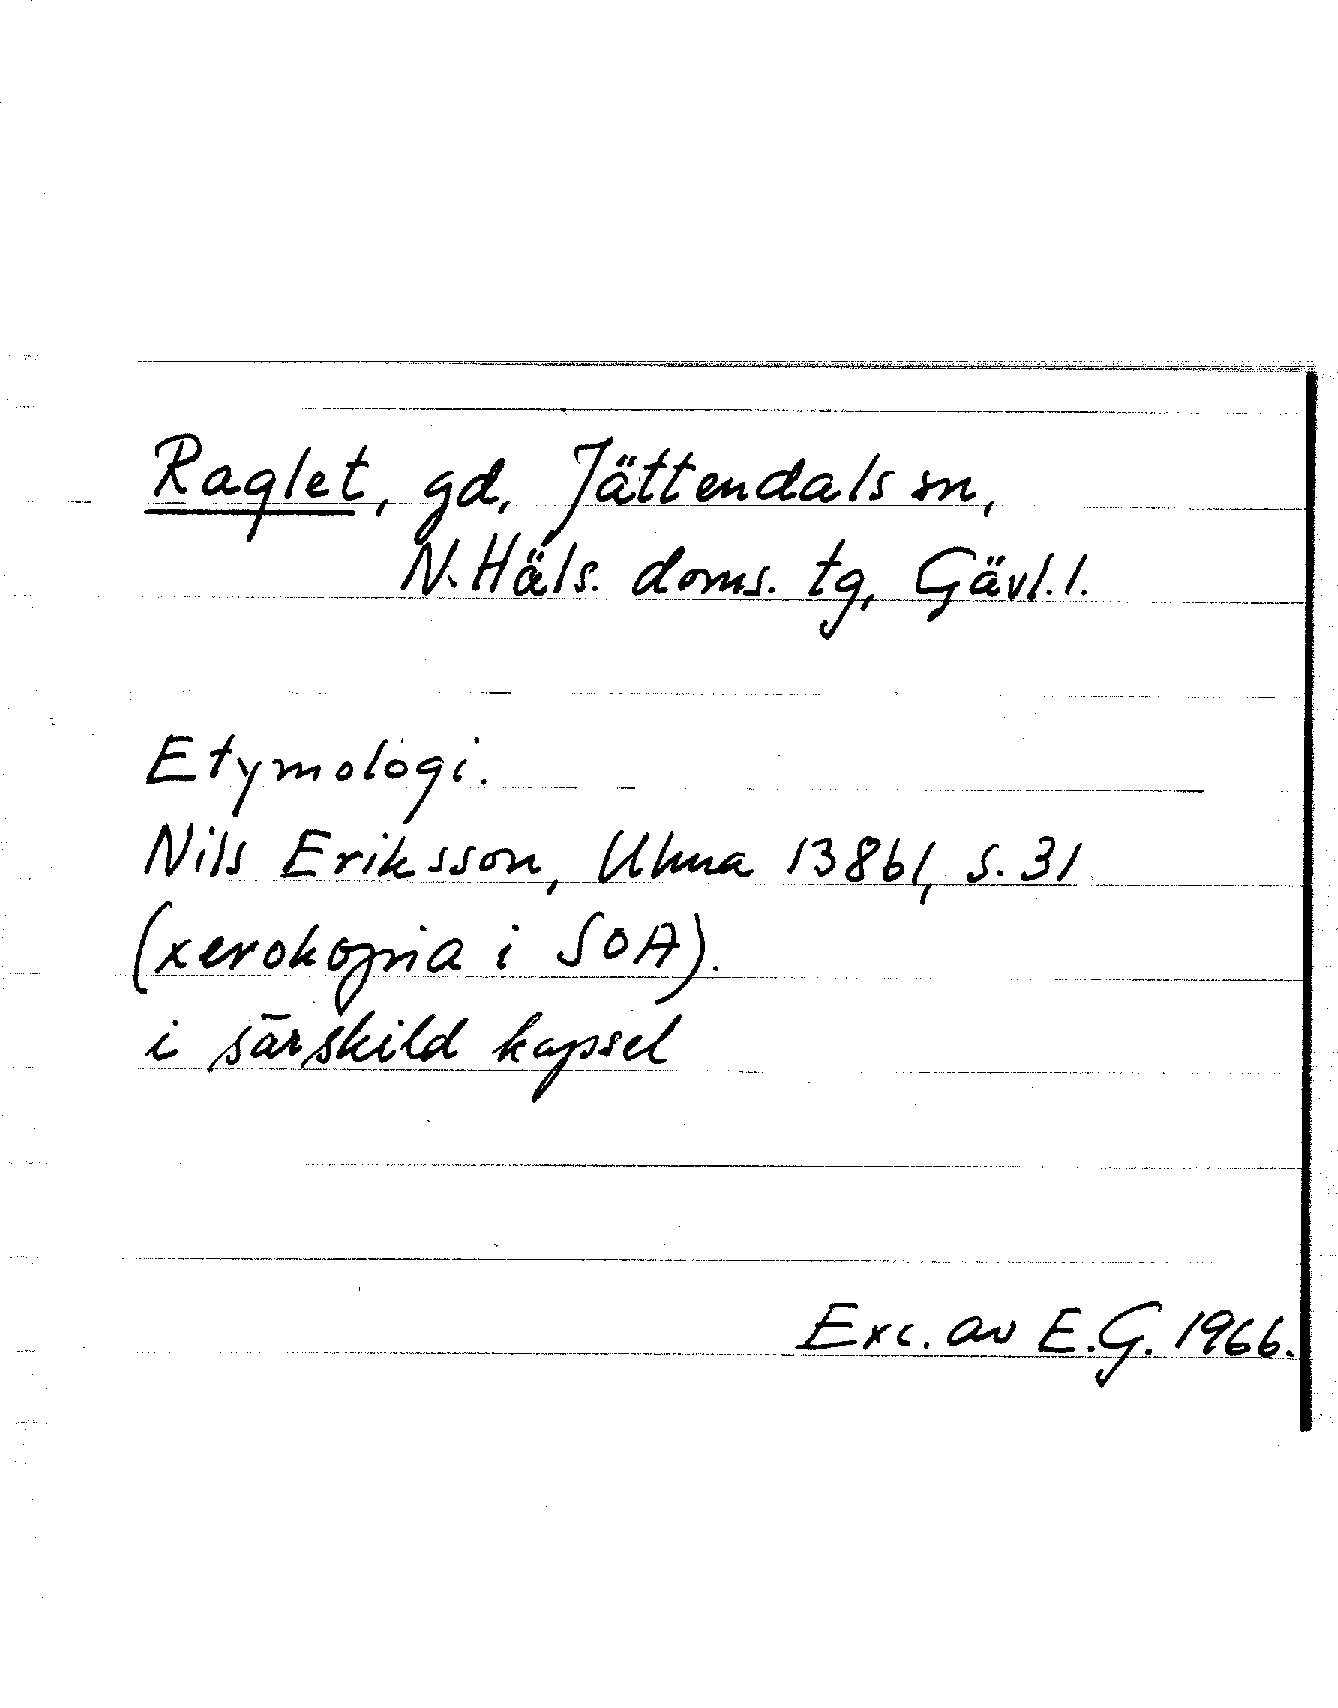 Raglet, gd, Jättendals sn,
N. Häls. doms. tg, Gävl. l.
Etymologi.
Nils Eriksson, Ulma 13861, s. 31
(xerokopia i SOA).
i särskild kapsel
Exc. av E.G. 1966.